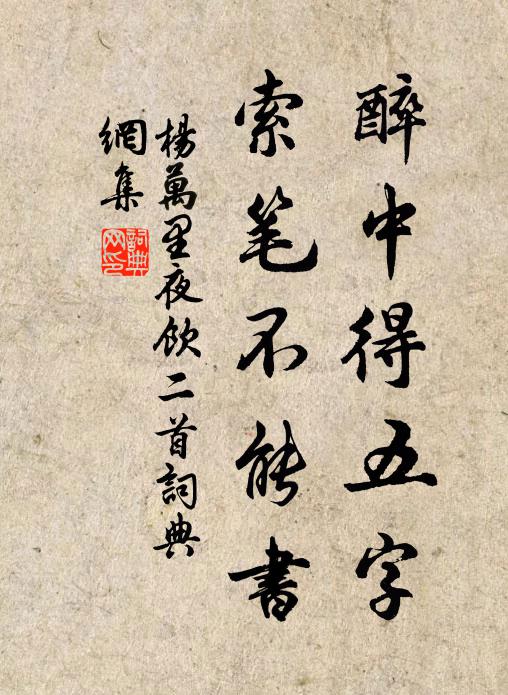 醉中得五字
索笔不能書
楊萬里夜飲二首詞典
網集
詞典網印